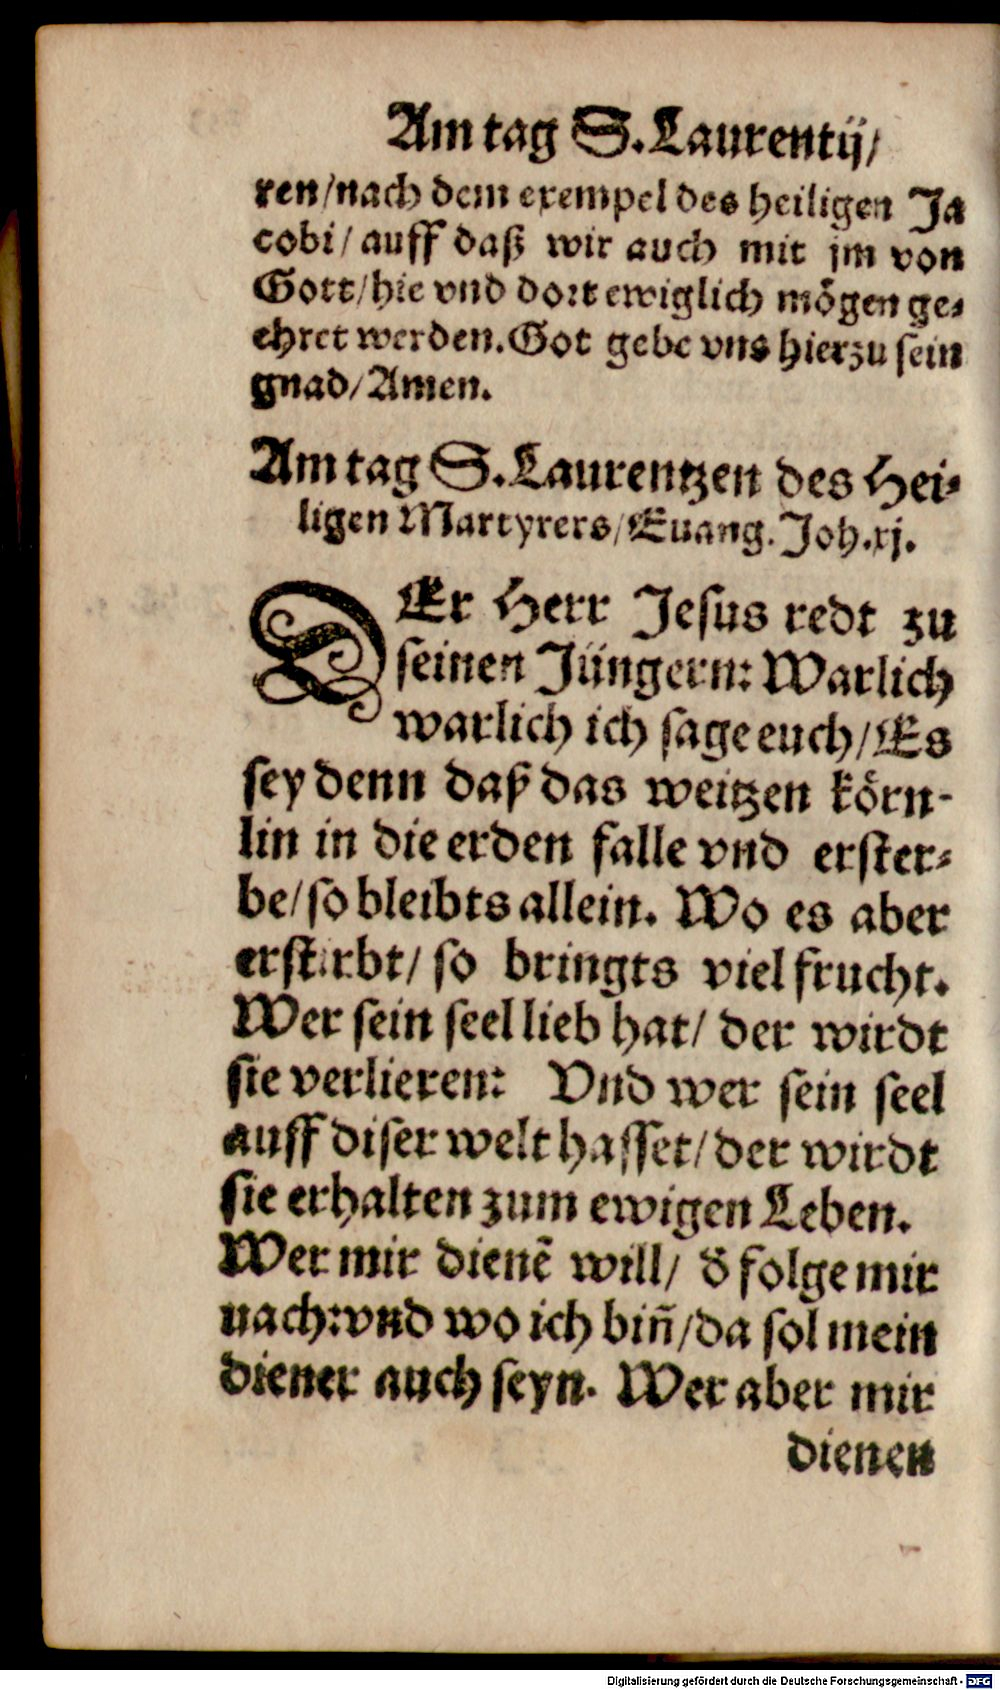 Am tag S. Laurentij/
ren/nach dem exempel des heiligen Ja
cobi/ auff daß wir auch mit jm von
Gott/hie vnd dort ewiglich mögen ge⸗
ehret werden. Got gebe vns hierzu sein
gnad/Amen.
Am tag S. Laurentzen des Hei⸗
ligen Martyrers/Euang. Joh.xj.
DEr Herr Jesus redt zu
seinen Jüngern: Warlich
warlich ich sage euch/Es
sey denn daß das weitzen körn-
lin in die erden falle vnd erster⸗
be/so bleibts allein. Wo es aber
erstirbt/ so bringts viel frucht.
Wer sein seel lieb hat/ der wirdt
sie verlieren: Vnd wer sein seel
auff diser welt hasset/der wirdt
sie erhalten zum ewigen Leben.
Wer mir dienẽ will/ d̃ folge mir
nach:vnd wo ich biñ/da sol mein
diener auch seyn. Wer aber mir
dienen
Digitalisierung gefördert durch die Deutsche Forschungsgemeinschaft - DFG